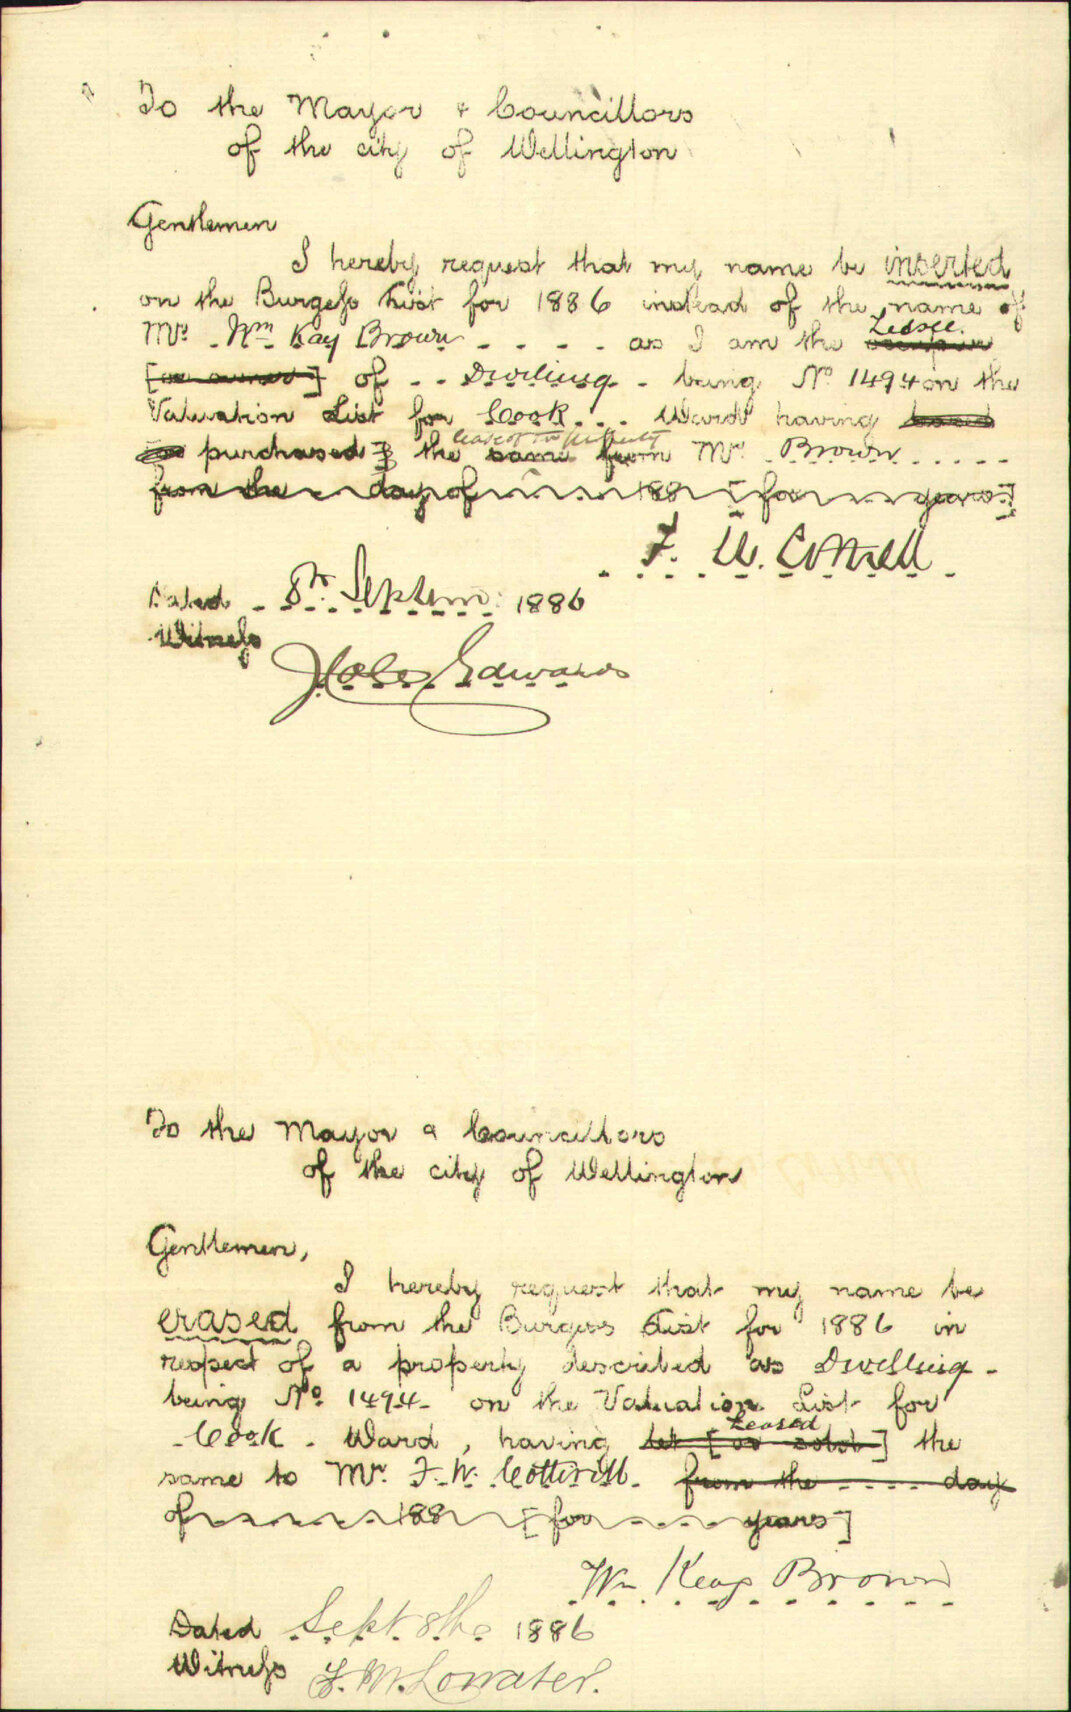 To the Mayor & Councillors
of the city of Wellington
Gentlemen
I hereby request that my name be inserted
on the Burgess List for 1886 instead of the name of
Mr. Wm Kay Brown as I am the Lessee occupier
[or owner] of Dwelling being No 1494 on the
Valuation List for Cook Ward having
purchased the same from Mr Brown
from the day of 188 [for years]
F. W. Cottrell
Dated 8th Septem: 1886
Witness
Edwards
To the Mayor & Councillors
of the city of Wellington
Gentlemen,
I hereby request that my name be
erased from the Burgess List for 1886 in
respect of a property described as Dwelling
being No 1494 on the Valuation List for
Leased
Cook Ward, having let [or sold] the
same to Mr. F. W. Cottrell from the day
of 188 [for years]
Wm Kay Brown
Dated Sept 8th 1886
Witness F. W. Lowater.